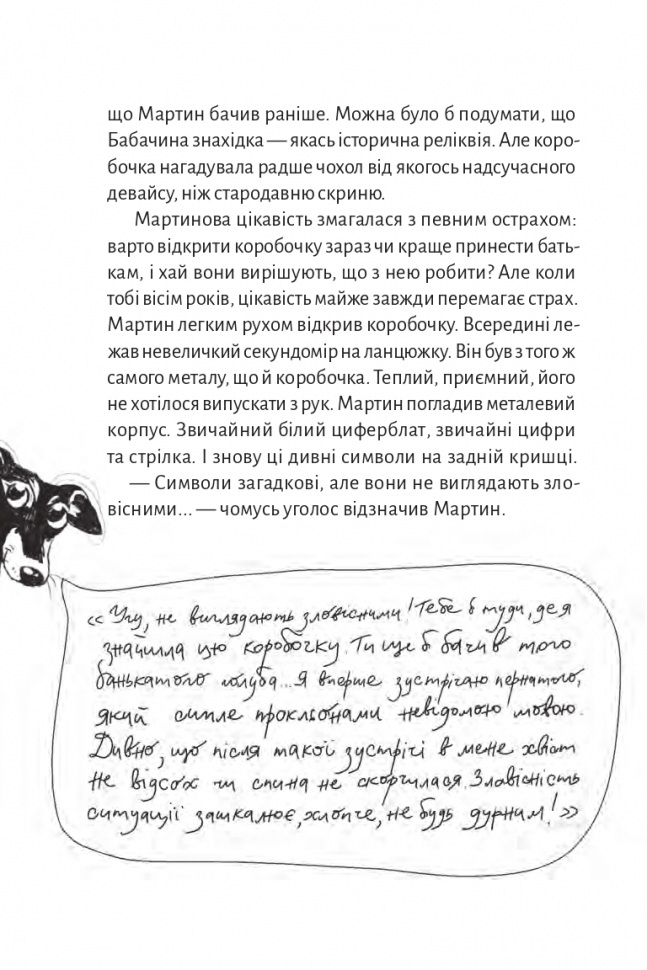 що Мартин бачив раніше. Можна було б подумати, що
Бабачина знахідка — якась історична реліквія. Але коро-
бочка нагадувала радше чохол від якогось надсучасного
девайсу, ніж стародавню скриню.
Мартинова цікавість змагалася з певним острахом:
варто відкрити коробочку зараз чи краще принести бать-
кам, і хай вони вирішують, що з нею робити? Але коли
тобі вісім років, цікавість майже завжди перемагає страх.
Мартин легким рухом відкрив коробочку. Всередині ле-
жав невеличкий секундомір на ланцюжку. Він був з того ж
самого металу, що й коробочка. Теплий, приємний, його
не хотілося випускати з рук. Мартин погладив металевий
корпус. Звичайний білий циферблат, звичайні цифри
та стрілка. І знову ці дивні символи на задній кришці.
— Символи загадкові, але вони не виглядають зло-
вісними... — чомусь уголос відзначив Мартин.
«Угу, не виглядають зловісними! Тебе б туди, де я
знайшла цю коробочку. Ти ще б бачив того
банькатого голуба... Я вперше зустрічаю пернатого,
який сипле прокльонами невідомою мовою.
Дивно, що після такої зустрічі в мене хвіст
не відсох чи спина не скорчилася. Зловісність
ситуації зашкалює, хлопче, не будь дурним!»